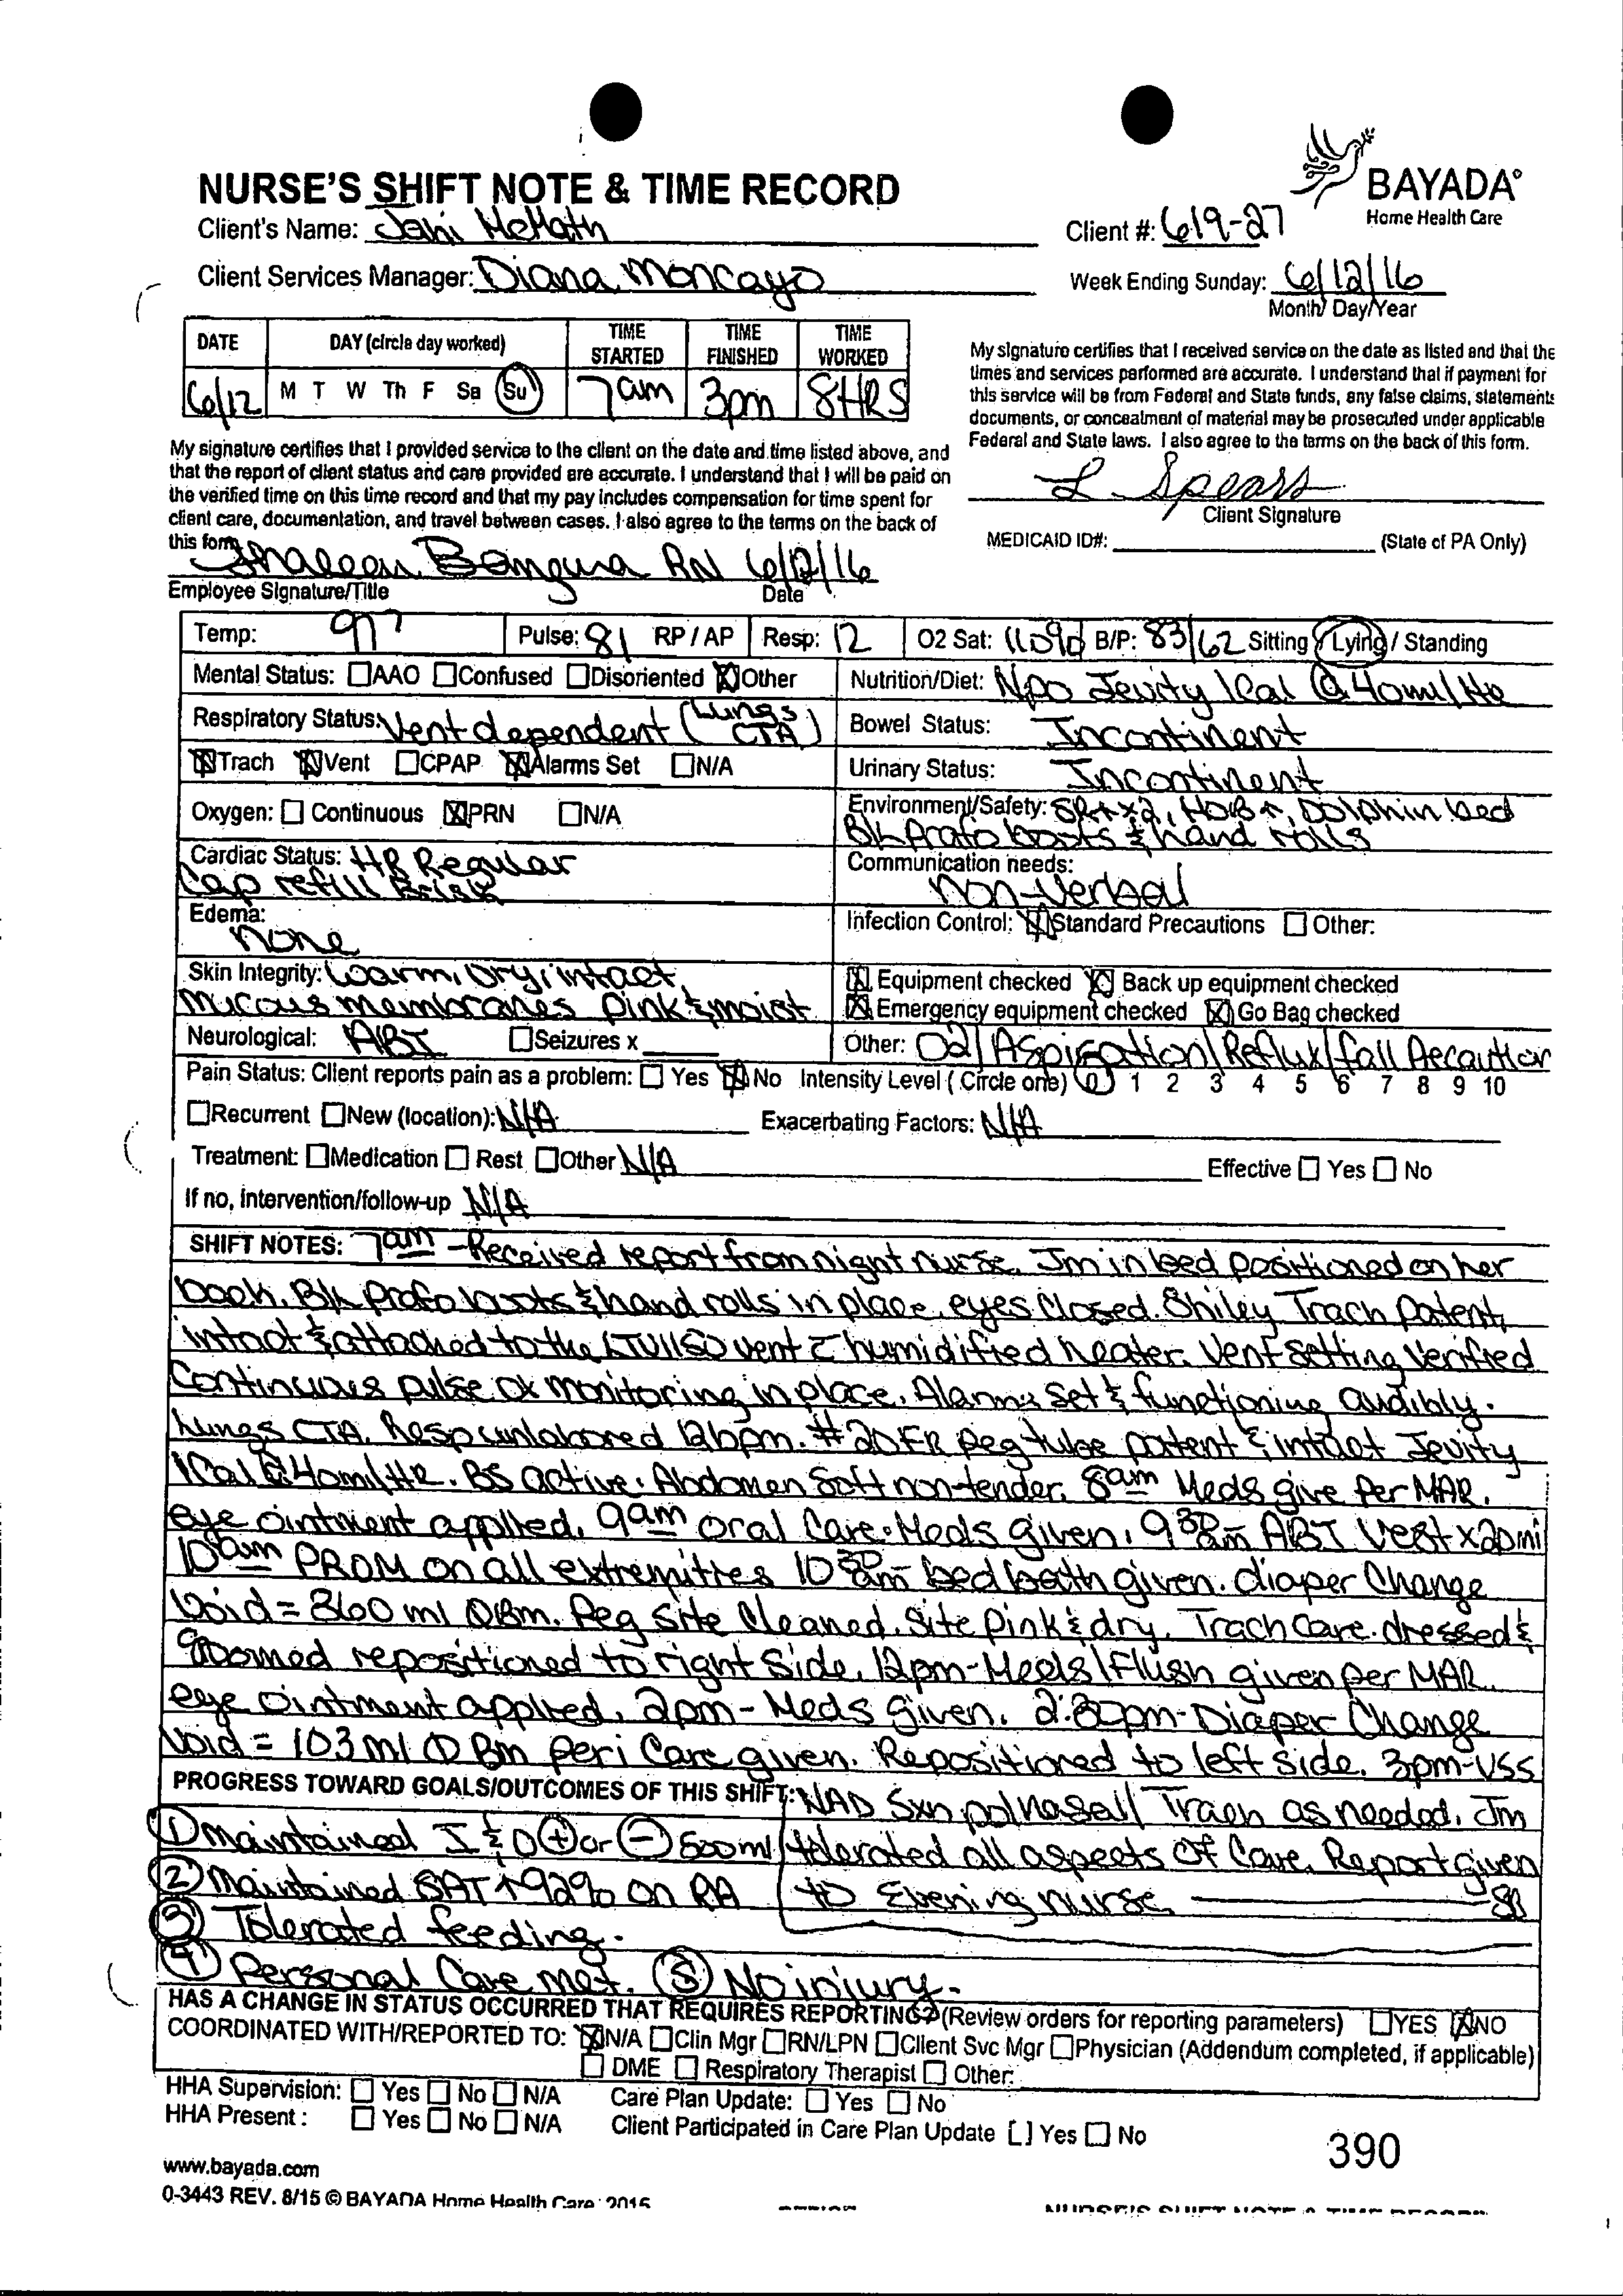 NURSE'S SHIFT NOTE & TIME RECORD
BAYADA®
Home Health Care
Client's Name: Jahi McMath
Client #: 619-27
Client Services Manager: Diana Moncayo
Week Ending Sunday: 6/12/16
Month/ Day/Year
DATE DAY (circle day worked) TIME STARTED TIME FINISHED TIME WORKED
6/12 M T W Th F Sa Su 7am 3pm 8HRS
My signature certifies that I received service on the date as listed and that the
times and services performed are accurate. I understand that if payment for
this service will be from Federal and State funds, any false claims, statements
documents, or concealment of material may be prosecuted under applicable
Federal and State laws. I also agree to the terms on the back of this form.
L Spears
Client Signature
MEDICAID ID#: (State of PA Only)
My signature certifies that I provided service to the client on the date and time listed above, and
that the report of client status and care provided are accurate. I understand that I will be paid on
the verified time on this time record and that my pay includes compensation for time spent for
client care, documentation, and travel between cases. I also agree to the terms on the back of
this form.
Bangura RN 6/12/16
Employee Signature/Title Date
Temp: 97⁷ Pulse: 81 RP / AP Resp: 12 O2 Sat: B/P: 83/62 Sitting / Lying / Standing
Mental Status: ☐AAO ☐Confused ☐Disoriented ☒Other
Nutrition/Diet: NPO Jevity 1Cal @ 40ml/HR
Respiratory Status: Vent dependent (Lungs CTA)
Bowel Status: Incontinent
☒Trach ☒Vent ☐CPAP ☒Alarms Set ☐N/A
Urinary Status: Incontinent
Oxygen: ☐ Continuous ☒PRN ☐N/A
Environment/Safety: SR↑x2, HOB↑, Dolphin bed
BLL Prafo boots & hand rolls
Cardiac Status: HR Regular
Cap refill Brisk
Communication needs:
non-verbal
Edema:
none
Infection Control: ☒Standard Precautions ☐ Other:
Skin Integrity: Warm, Dry, intact,
mucous membranes pink & moist
☒ Equipment checked ☒ Back up equipment checked
☒ Emergency equipment checked ☒ Go Bag checked
Neurological: ABI ☐Seizures x
Other: O2/Aspiration/Reflux/fall Precaution
Pain Status: Client reports pain as a problem: ☐ Yes ☒No Intensity Level ( Circle one) 0 1 2 3 4 5 6 7 8 9 10
☐Recurrent ☐New (location): N/A Exacerbating Factors: N/A
Treatment: ☐Medication ☐ Rest ☐Other N/A Effective ☐ Yes ☐ No
If no, intervention/follow-up N/A
SHIFT NOTES: 7am - Received report from night nurse. Jm in bed positioned on her
back. Prafo boots & hand rolls in place, eyes closed. Shiley Trach Patent,
intact & attached to the LTV1150 vent c̄ humidified heater. Vent setting Verified
Continuous pulse ox monitoring in place. Alarms set & functioning audibly.
Lungs CTA. Resp unlabored 12bpm. #20FR peg tube patent & intact Jevity
1Cal @ 40ml/HR. BS active. Abdomen soft non-tender. 8am Meds give Per MAR.
eye ointment applied. 9am oral Care. Meds given. 9³⁰am ABI Vest x20mi
10am PROM on all extremities 10³⁰am bed bath given. diaper Change
Void = 360 ml ØBm. Peg Site Cleaned. Site pink & dry. Trach Care. dressed &
groomed repositioned to right side. 12pm - Meds/Flush given per MAR.
eye ointment applied. 2pm - Meds given. 2:30pm - Diaper Change
Void = 103ml Bm peri Care given. Repositioned to left side. 3pm - VSS
PROGRESS TOWARD GOALS/OUTCOMES OF THIS SHIFT: NAD Sxn po/nasal/ Trach as needed. Jm
① maintained I & O ⊕ or ⊖ 500ml tolerated all aspects of Care. Report given
② Maintained SAT ↑ 92% on RA to Evening nurse. SB
③ Tolerated feeding.
④ Personal Care met. ⑤ No injury.
HAS A CHANGE IN STATUS OCCURRED THAT REQUIRES REPORTING? (Review orders for reporting parameters) ☐YES ☒NO
COORDINATED WITH/REPORTED TO: ☒N/A ☐Clin Mgr ☐RN/LPN ☐Client Svc Mgr ☐Physician (Addendum completed, if applicable)
☐ DME ☐ Respiratory Therapist ☐ Other:
HHA Supervision: ☐ Yes ☐ No ☐ N/A Care Plan Update: ☐ Yes ☐ No
HHA Present : ☐ Yes ☐ No ☐ N/A Client Participated in Care Plan Update [ ] Yes ☐ No
390
www.bayada.com
0-3443 REV. 8/15 © BAYADA Home Health Care 2015
NURSE'S SHIFT NOTE & TIME RECORD